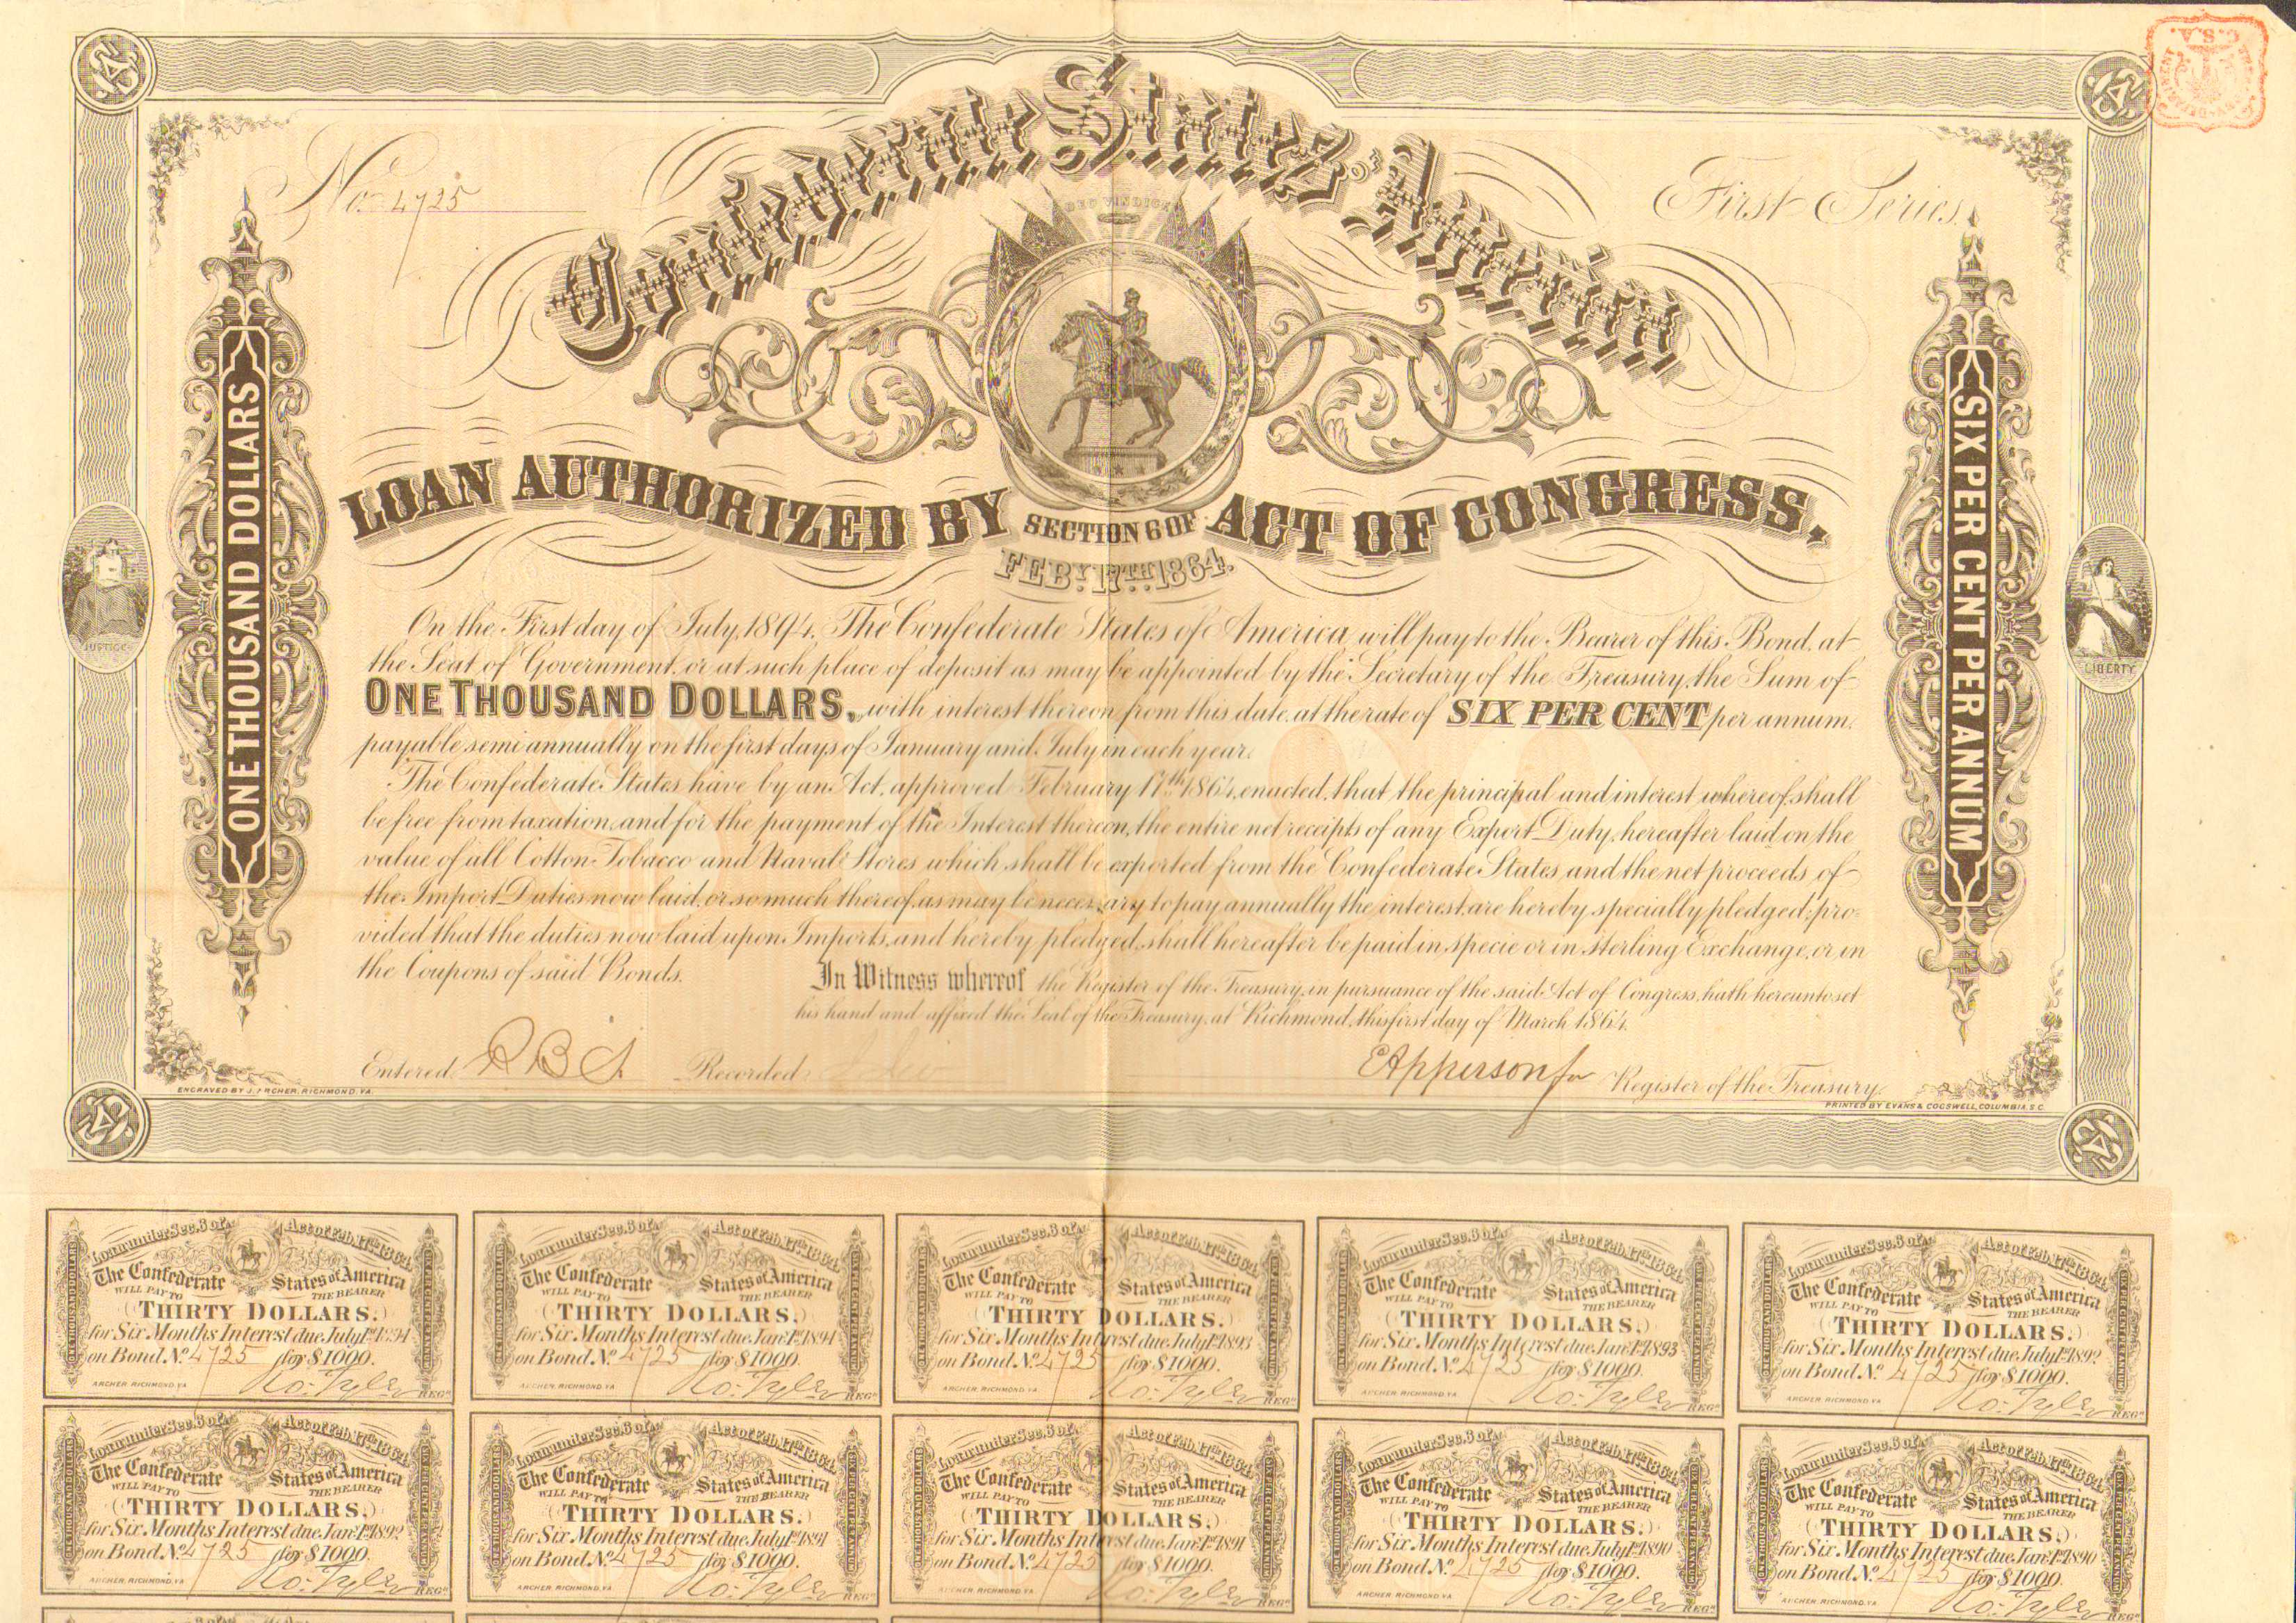 C.S.A.
No. 4725
First Series.
Confederate States of America
DEO VINDICE
LOAN AUTHORIZED BY SECTION 6 OF ACT OF CONGRESS,
FEBY. 17TH. 1864.
ONE THOUSAND DOLLARS
SIX PER CENT PER ANNUM
JUSTICE
LIBERTY
On the First day of July, 1894, The Confederate States of America will pay to the Bearer of this Bond, at
the Seat of Government, or at such place of deposit as may be appointed by the Secretary of the Treasury, the Sum of
ONE THOUSAND DOLLARS, with interest thereon from this date, at the rate of SIX PER CENT per annum,
payable semi annually on the first days of January and July in each year.
The Confederate States have by an Act, approved February 17th 1864, enacted, that the principal and interest whereof shall
be free from taxation, and for the payment of the Interest thereon, the entire net receipts of any Export Duty, hereafter laid on the
value of all Cotton Tobacco and Naval Stores which shall be exported from the Confederate States, and the net proceeds of
the Import Duties now laid, or so much thereof, as may be necessary to pay annually the interest, are hereby specially pledged; pro-
vided that the duties now laid upon Imports, and hereby pledged, shall hereafter be paid in specie or in sterling Exchange, or in
the Coupons of said Bonds.
In Witness whereof the Register of the Treasury, in pursuance of the said Act of Congress, hath hereunto set
his hand and affixed the Seal of the Treasury, at Richmond, this first day of March 1864.
Entered R B S. Recorded
E Apperson for Register of the Treasury.
ENGRAVED BY J. ARCHER, RICHMOND, VA.
PRINTED BY EVANS & COGSWELL, COLUMBIA, S.C.
Loan under Sec. 6 of Act of Feb. 17th 1864.
The Confederate States of America
WILL PAY TO THE BEARER
THIRTY DOLLARS.
for Six Months Interest due July 1st 1894
on Bond No. 4725 for $1000.
ARCHER, RICHMOND, VA
Ro: Tyler REGR
Loan under Sec. 6 of Act of Feb. 17th 1864.
The Confederate States of America
WILL PAY TO THE BEARER
THIRTY DOLLARS.
for Six Months Interest due Jan: 1st 1894
on Bond No. 4725 for $1000.
ARCHER, RICHMOND, VA
Ro: Tyler REGR
Loan under Sec. 6 of Act of Feb. 17th 1864.
The Confederate States of America
WILL PAY TO THE BEARER
THIRTY DOLLARS.
for Six Months Interest due July 1st 1893
on Bond No. 4725 for $1000.
ARCHER, RICHMOND, VA
Ro: Tyler REGR
Loan under Sec. 6 of Act of Feb. 17th 1864.
The Confederate States of America
WILL PAY TO THE BEARER
THIRTY DOLLARS.
for Six Months Interest due Jan: 1st 1893
on Bond No. 4725 for $1000.
ARCHER, RICHMOND, VA
Ro: Tyler REGR
Loan under Sec. 6 of Act of Feb. 17th 1864.
The Confederate States of America
WILL PAY TO THE BEARER
THIRTY DOLLARS.
for Six Months Interest due July 1st 1892
on Bond No. 4725 for $1000.
ARCHER, RICHMOND, VA
Ro: Tyler REGR
Loan under Sec. 6 of Act of Feb. 17th 1864.
The Confederate States of America
WILL PAY TO THE BEARER
THIRTY DOLLARS.
for Six Months Interest due Jan: 1st 1892
on Bond No. 4725 for $1000.
ARCHER, RICHMOND, VA
Ro: Tyler REGR
Loan under Sec. 6 of Act of Feb. 17th 1864.
The Confederate States of America
WILL PAY TO THE BEARER
THIRTY DOLLARS.
for Six Months Interest due July 1st 1891
on Bond No. 4725 for $1000.
ARCHER, RICHMOND, VA
Ro: Tyler REGR
Loan under Sec. 6 of Act of Feb. 17th 1864.
The Confederate States of America
WILL PAY TO THE BEARER
THIRTY DOLLARS.
for Six Months Interest due Jan: 1st 1891
on Bond No. 4725 for $1000.
ARCHER, RICHMOND, VA
Ro: Tyler REGR
Loan under Sec. 6 of Act of Feb. 17th 1864.
The Confederate States of America
WILL PAY TO THE BEARER
THIRTY DOLLARS.
for Six Months Interest due July 1st 1890
on Bond No. 4725 for $1000.
ARCHER, RICHMOND, VA
Ro: Tyler REGR
Loan under Sec. 6 of Act of Feb. 17th 1864.
The Confederate States of America
WILL PAY TO THE BEARER
THIRTY DOLLARS.
for Six Months Interest due Jan: 1st 1890
on Bond No. 4725 for $1000.
ARCHER, RICHMOND, VA
Ro: Tyler REGR